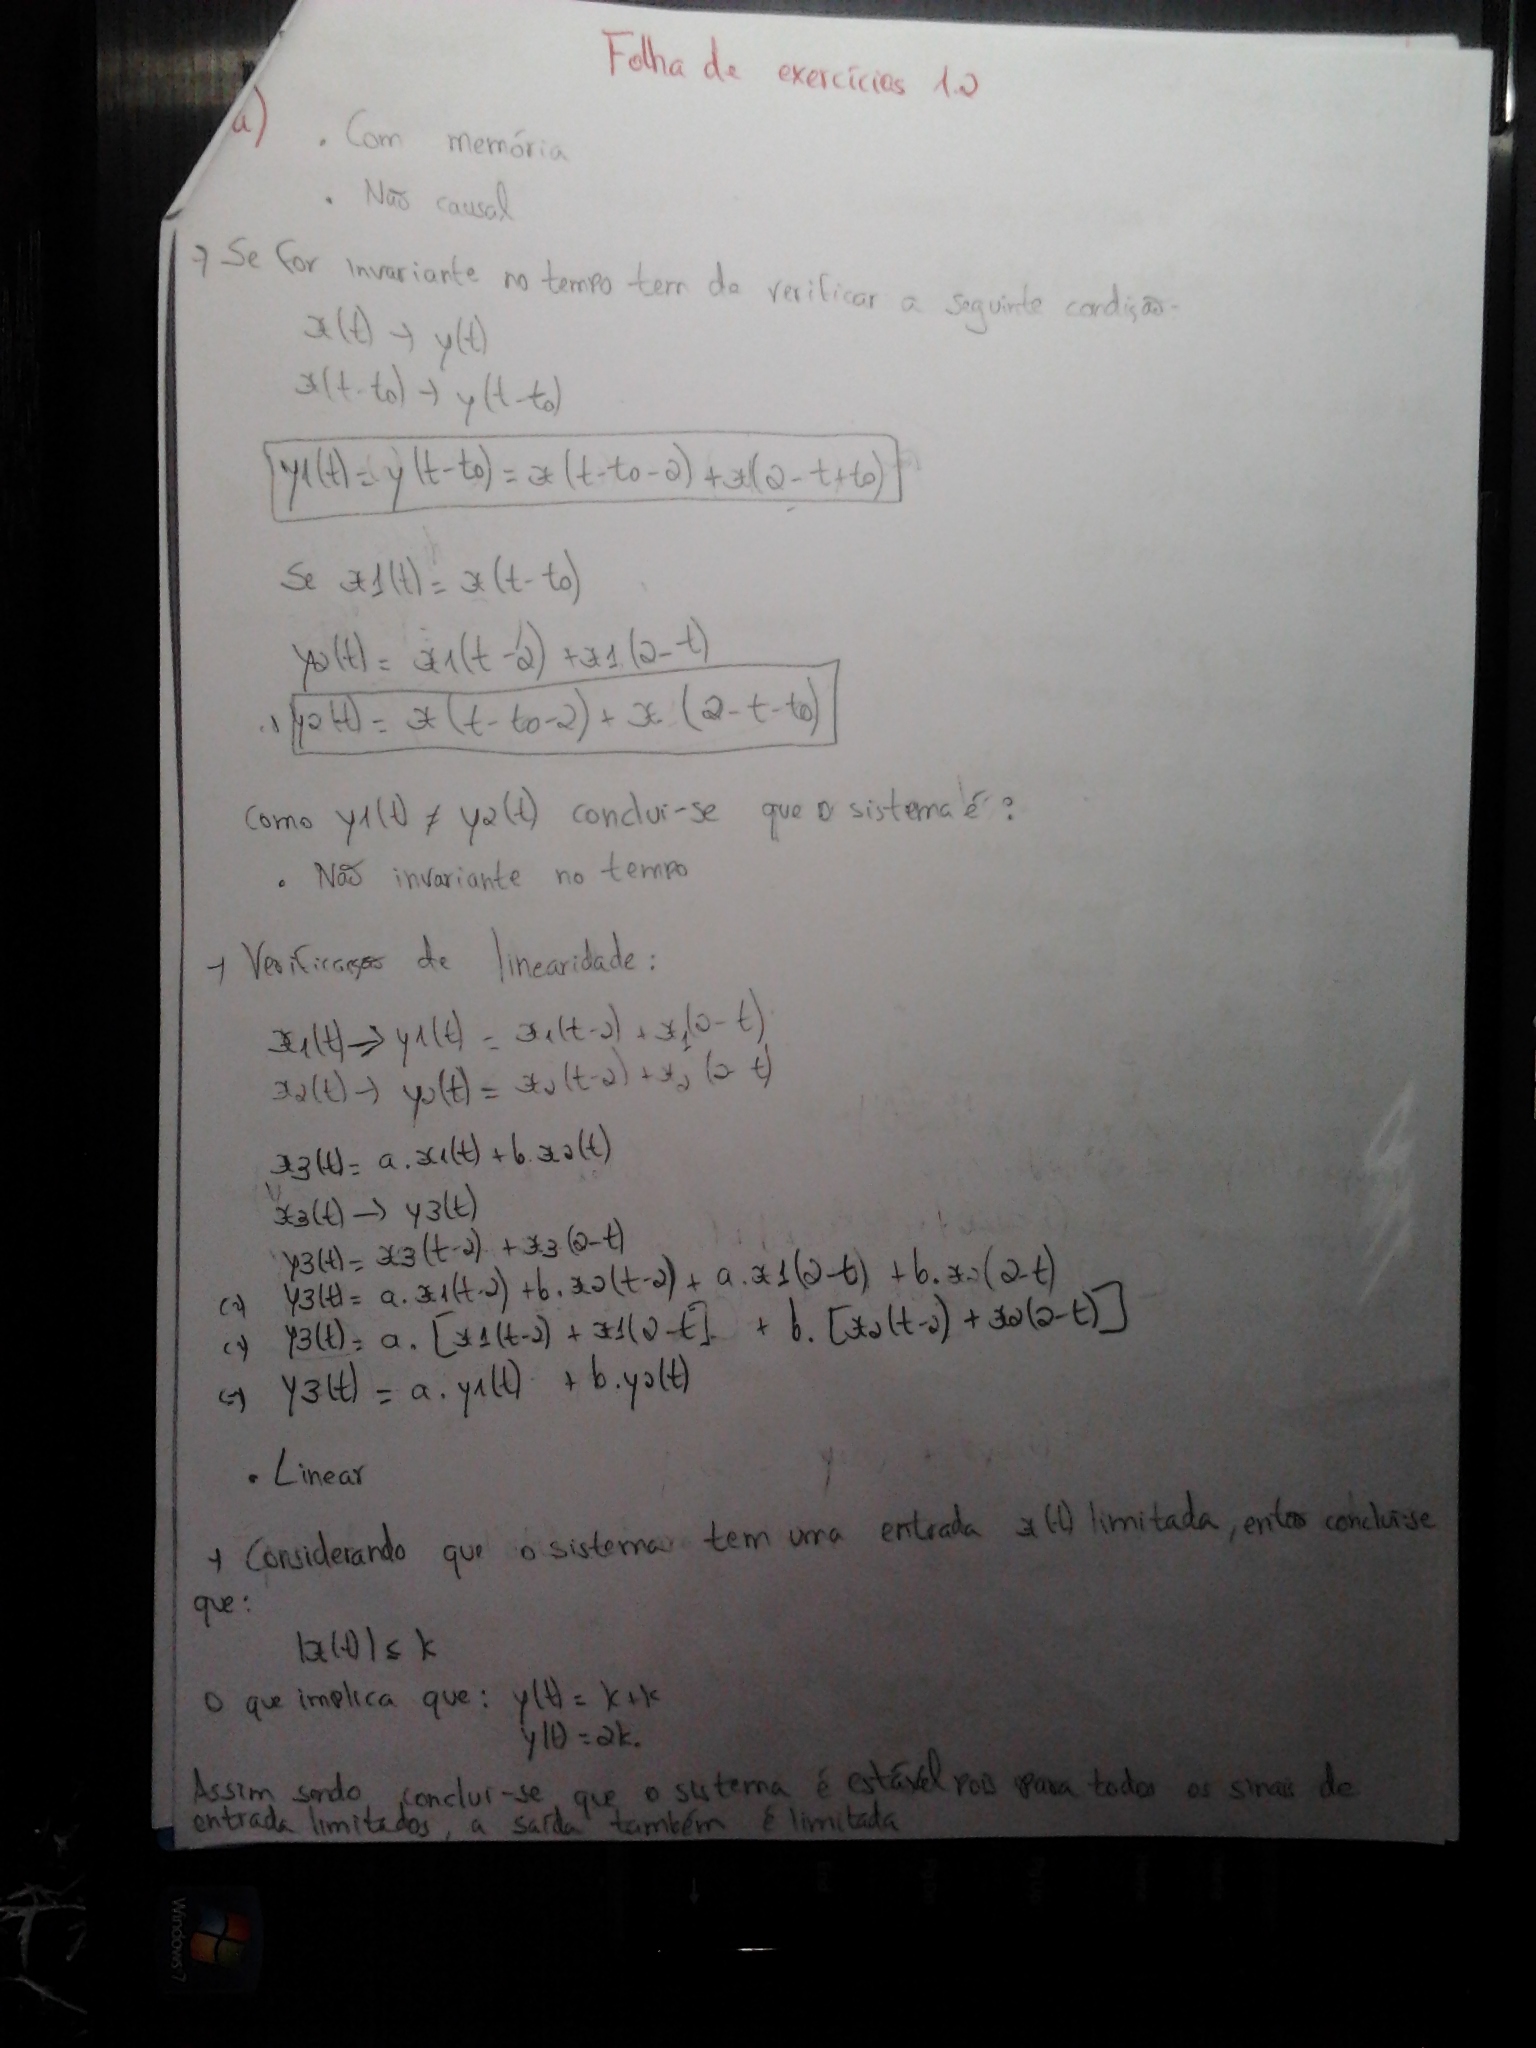 Folha de exercícios 1.2
a) • Com memória
• Não causal
→ Se for invariante no tempo tem de verificar a seguinte condição-
x(t) → y(t)
x(t-t0) → y(t-t0)
y1(t) = y(t-t0) = x(t-t0-2) + x(2-t+t0)
Se x1(t) = x(t-t0)
y2(t) = x1(t-2) + x1(2-t)
y2(t) = x(t-t0-2) + x(2-t-t0)
Como y1(t) ≠ y2(t) conclui-se que o sistema é:
• Não invariante no tempo
→ Verificação de linearidade:
x1(t) → y1(t) = x1(t-2) + x1(2-t)
x2(t) → y2(t) = x2(t-2) + x2(2-t)
x3(t) = a.x1(t) + b.x2(t)
x3(t) → y3(t)
y3(t) = x3(t-2) + x3(2-t)
(=) y3(t) = a.x1(t-2) + b.x2(t-2) + a.x1(2-t) + b.x2(2-t)
(=) y3(t) = a.[x1(t-2) + x1(2-t)] + b.[x2(t-2) + x2(2-t)]
(=) y3(t) = a.y1(t) + b.y2(t)
• Linear
→ Considerando que o sistema tem uma entrada x(t) limitada, então conclui-se
que:
|x(t)| ≤ k
O que implica que: y(t) = k+k
y(t) = 2k.
Assim sendo, conclui-se que o sistema é estável pois para todos os sinais de
entrada limitados, a saída também é limitada
Windows 7